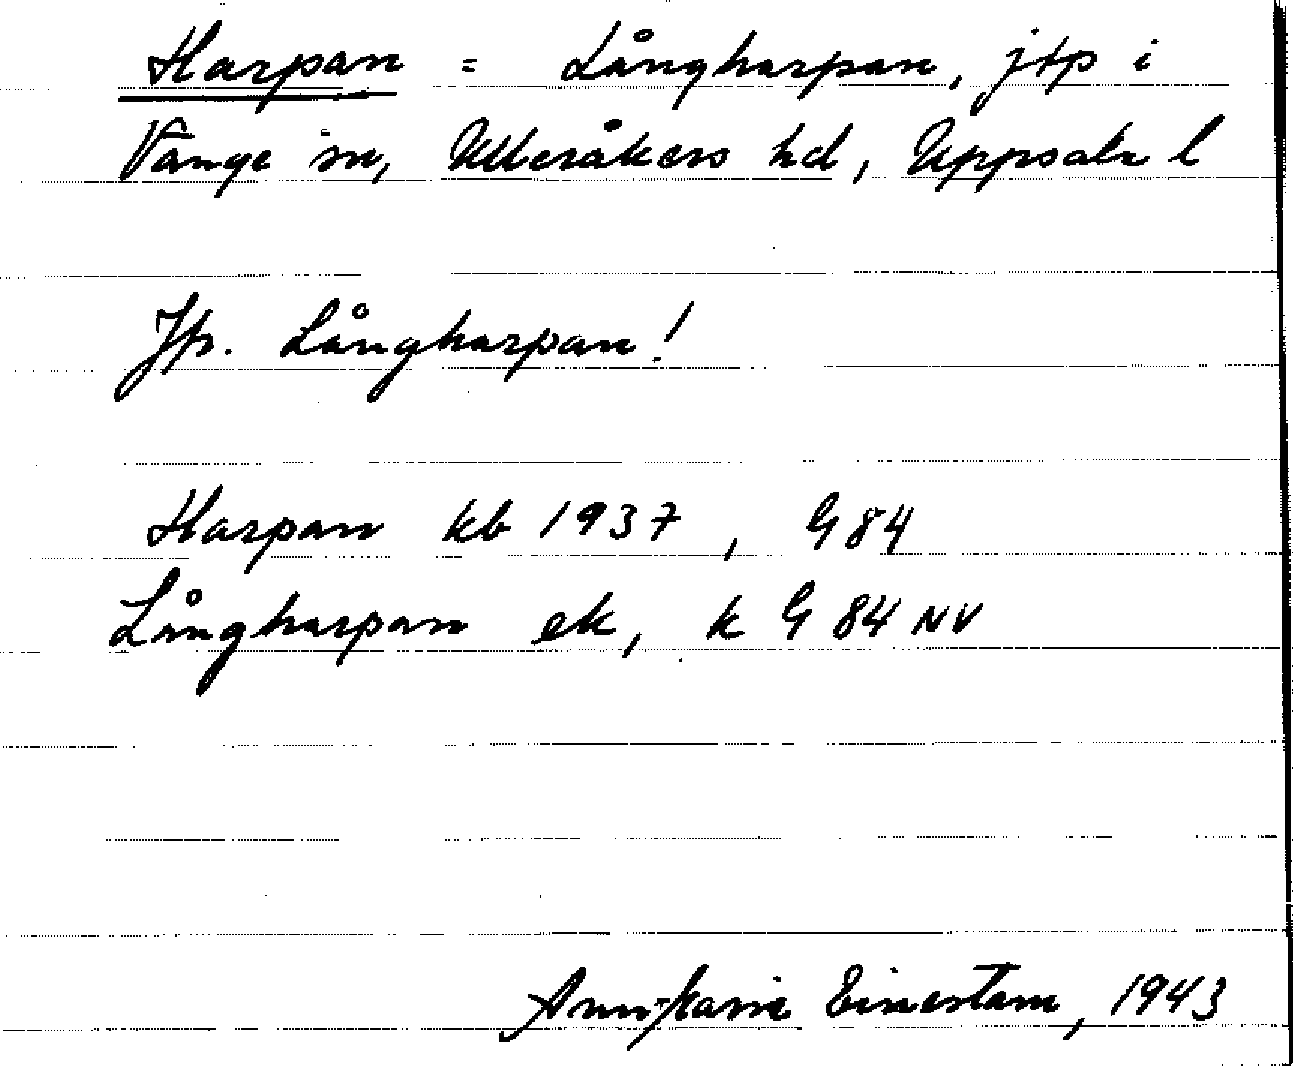 Harpan = Långharpan, jtp i
Vänge sn, Ulleråkers hd, Uppsala l
Jfr. Långharpan!
Harpan kb 1937, G 84
Långharpan ek, k G 84 NV
Ann-Marie Einestam, 1943